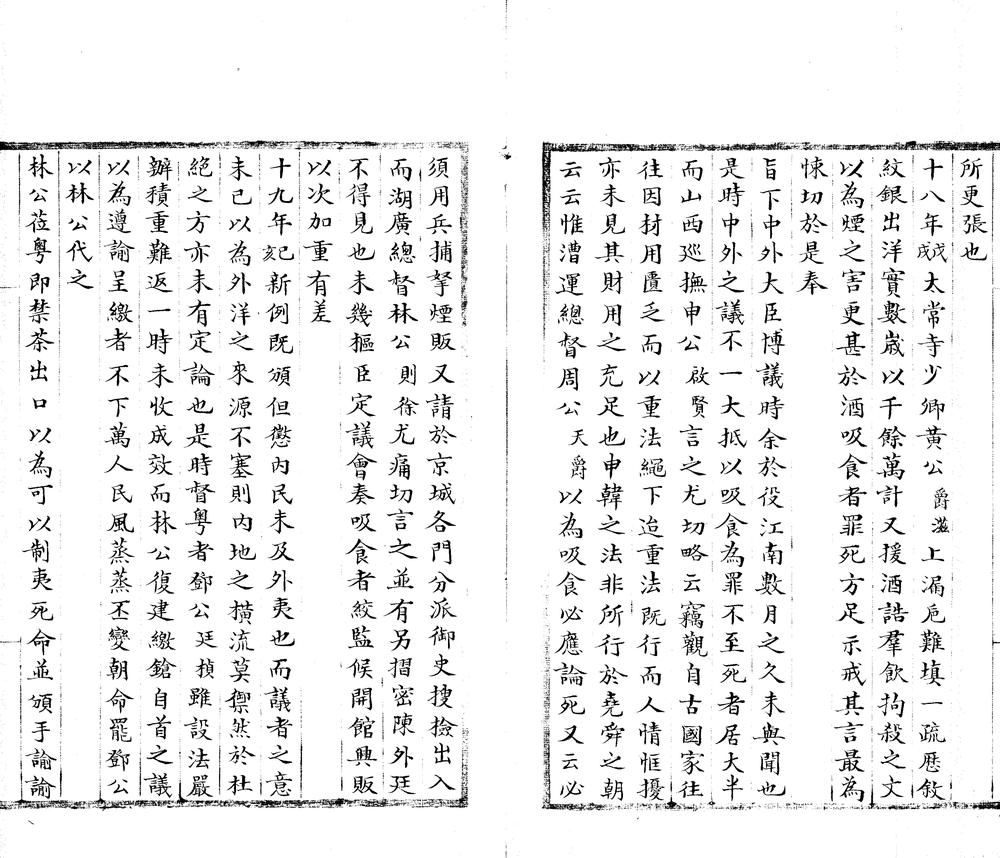 所更張也
十八年戊戌太常寺少卿黃公爵滋上漏巵難填一疏歷敘
紋銀出洋實數歲以千餘萬計又援酒誥羣飲拘殺之文
以為煙之害更甚於酒吸食者罪死方足示戒其言最為
悚切於是奉
旨下中外大臣博議時余於役江南數月之久未與聞也
是時中外之議不一大抵以吸食為罪不至死者居大半
而山西巡撫申公啟賢言之尤切略云竊觀自古國家往
往因材用匱乏而以重法繩下迨重法既行而人情恇擾
亦未見其財用之充足也申韓之法非所行於堯舜之朝
云云惟漕運總督周公天爵以為吸食必應論死又云必
須用兵捕拏煙販又請於京城各門分派御史搜撿出入
而湖廣總督林公則徐尤痛切言之並有另摺密陳外廷
不得見也未幾摳臣定議會奏吸食者絞監候開館興販
以次加重有差
十九年己亥新例既頒但懲內民未及外夷也而議者之意
未已以為外洋之來源不塞則內地之橫流莫禦然於杜
絕之方亦未有定論也是時督粵者鄧公廷楨雖設法嚴
辦積重難返一時未收成效而林公復建繳鎗自首之議
以為遵諭呈繳者不下萬人民風蒸蒸丕變朝命罷鄧公
以林公代之
林公莅粵即禁茶出口以為可以制夷死命並頒手諭諭